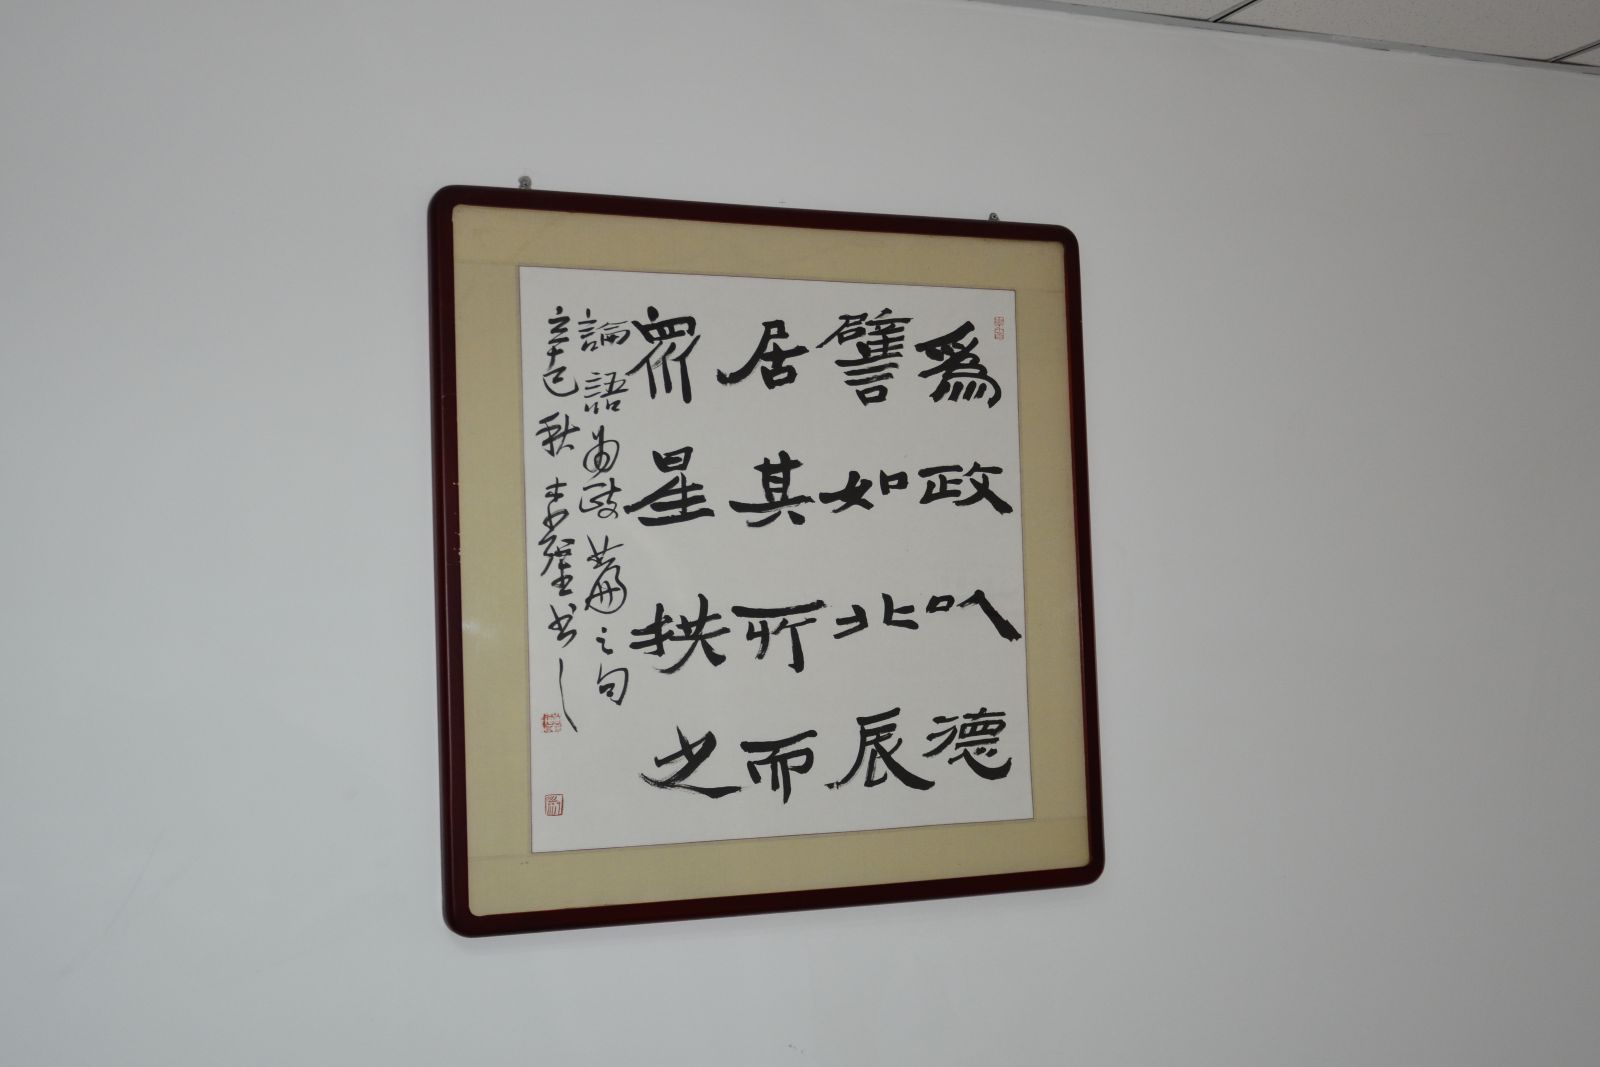 爲政以德
譬如北辰
居其所而
衆星拱之
論語為政篇之句
辛巳秋
书